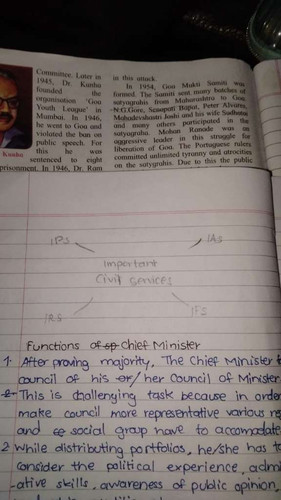 Committee. Later in
1945, Dr. Kunha
founded the
organisation 'Goa
Youth League' in
Mumbai. In 1946,
he went to Goa and
violated the ban on
public speech. For
this he was
sentenced to eight
prisonment. In 1946, Dr. Ram
Kunha
in this attack.
In 1954, Goa Mukti Samiti was
formed. The Samiti sent many batches of
satyagrahis from Maharashtra to Goa.
N.G.Gore, Senapati Bapat, Peter Alvares,
Mahadevshastri Joshi and his wife Sudhatai
and many others participated in the
satyagraha. Mohan Ranade was an
aggressive leader in this struggle for
liberation of Goa. The Portuguese rulers
committed unlimited tyranny and atrocities
on the satyagrahis. Due to this the public
IPS
IAS
Important
Civil services
IRS
IFS
Functions of Chief Minister
1. After proving majority, The Chief Minister
council of his or/her Council of Minister
2 This is challenging task because in order
make council more representative various
and social group have to accomodate
2 While distributing portfolios, he/she has to
Consider the political experience, admi
-ative skills, awareness of public opinion,